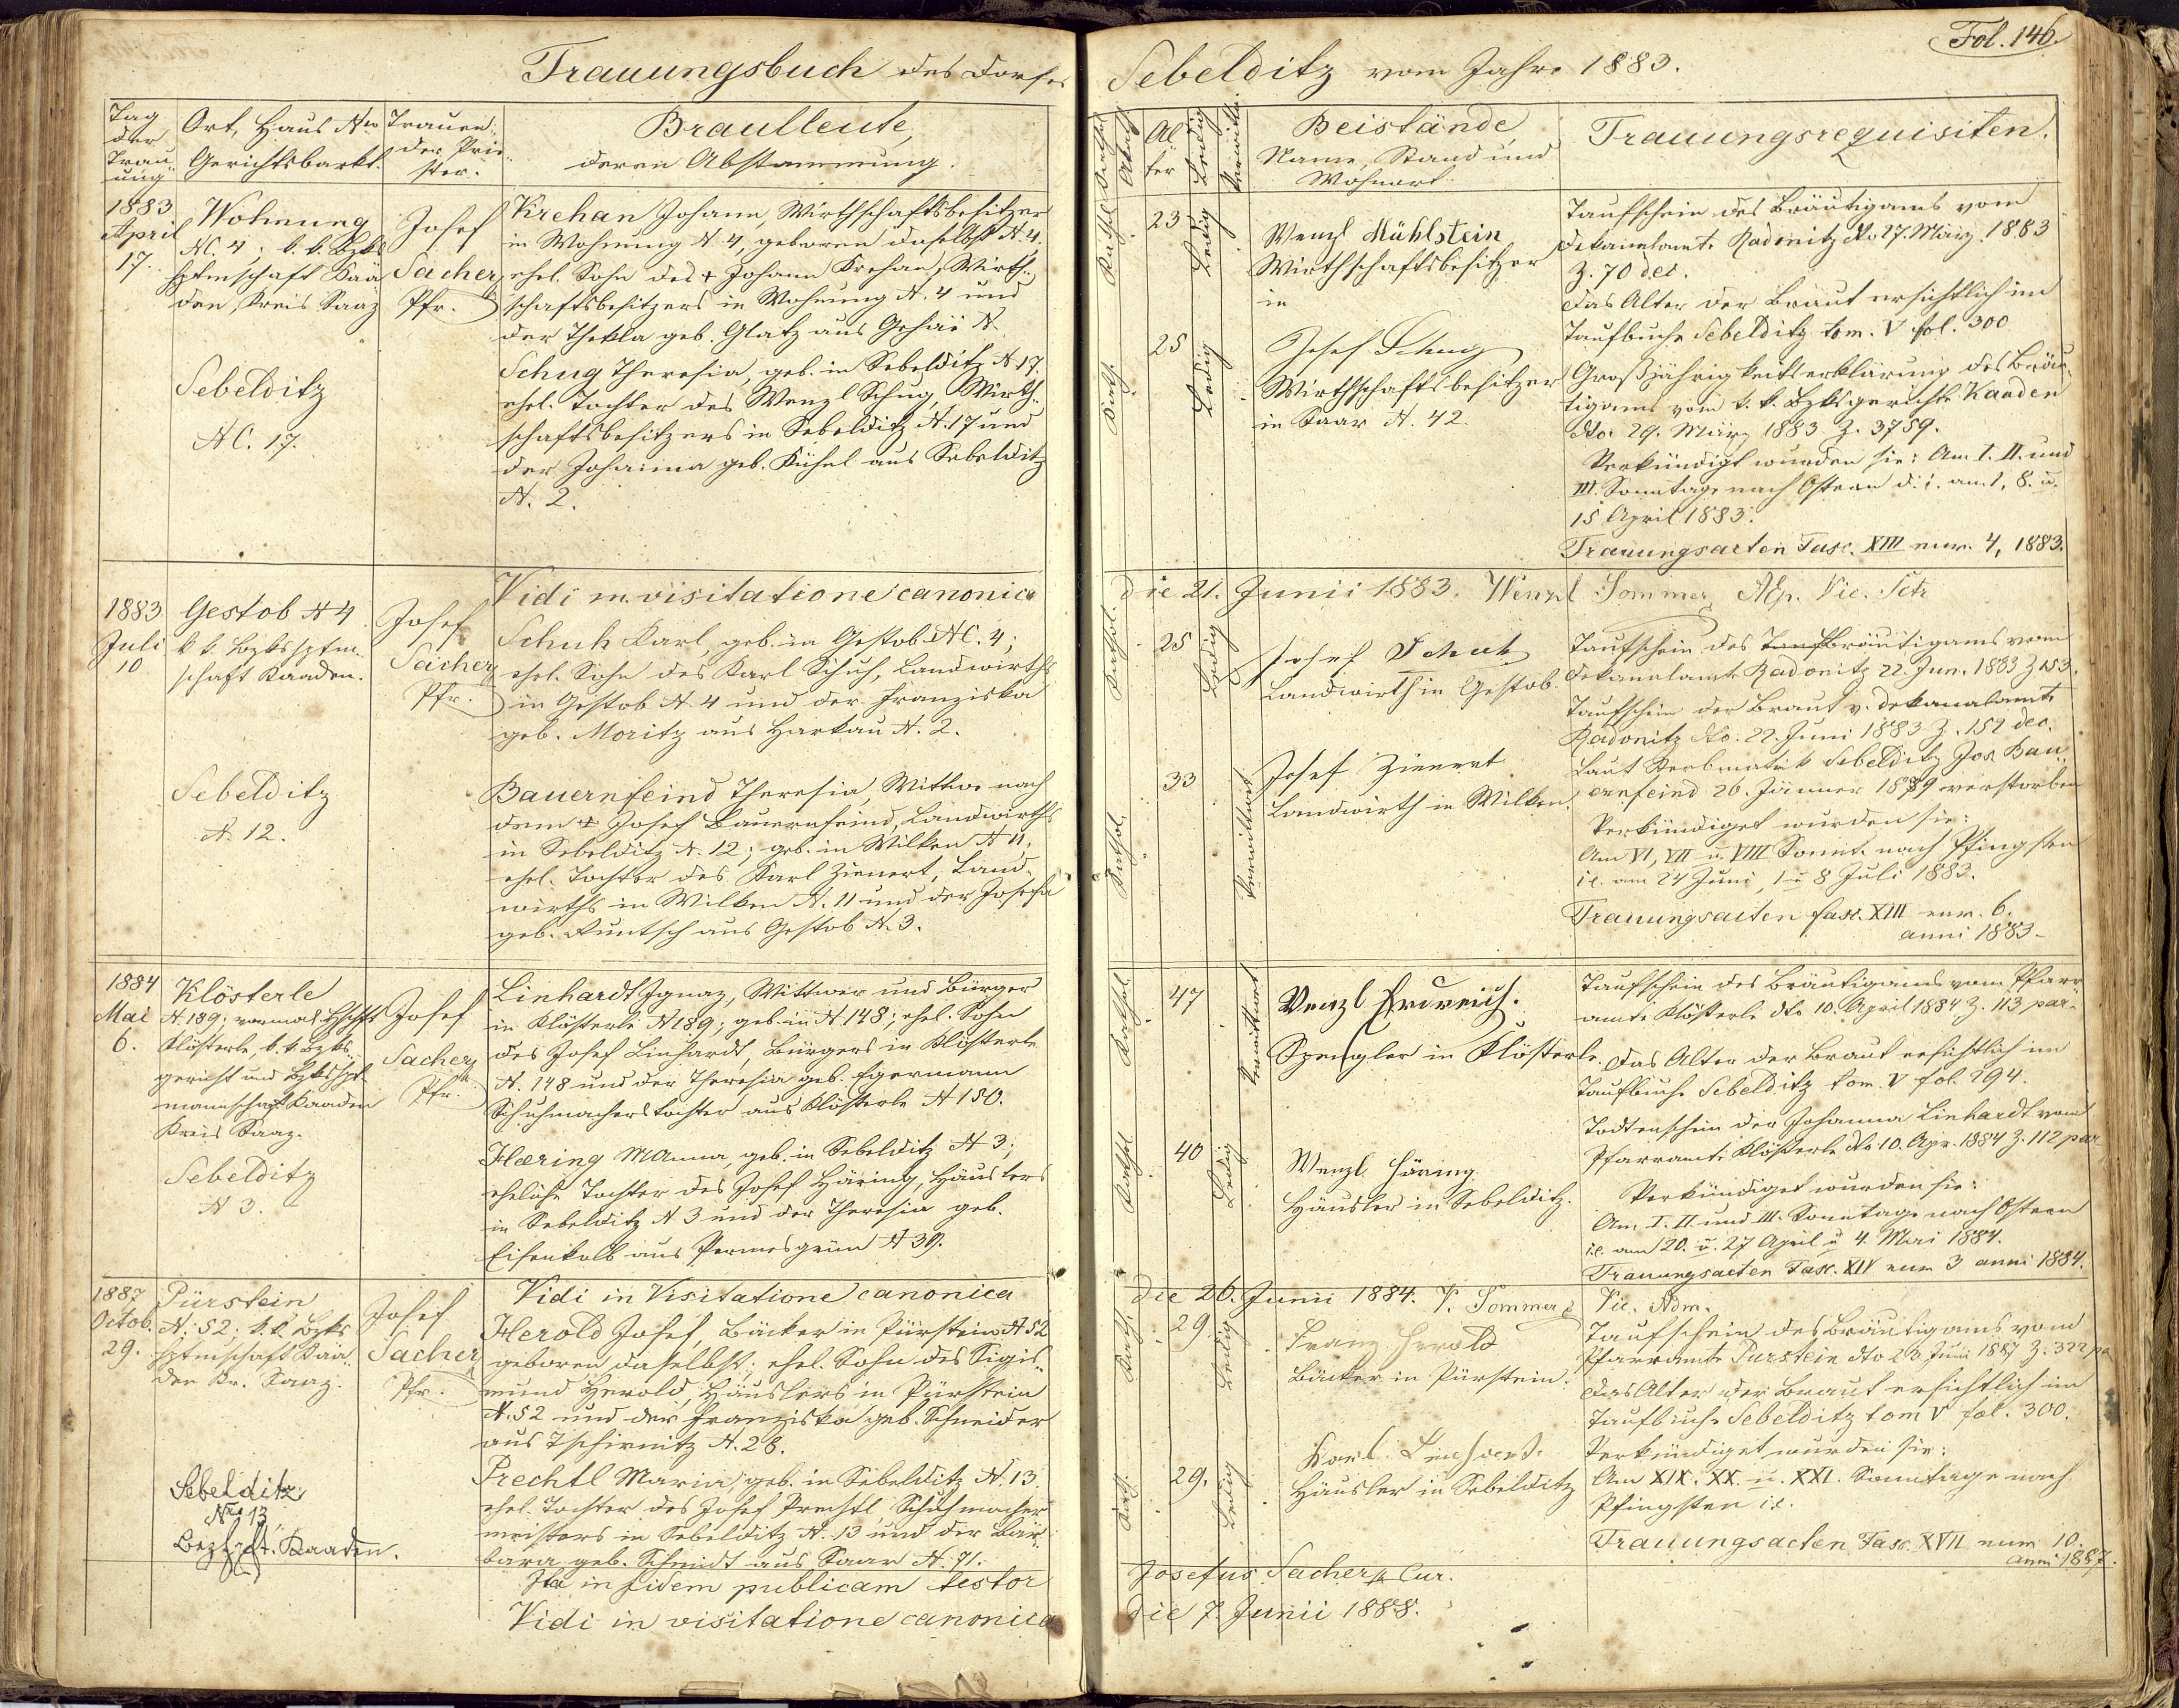 Fol. 146.
Trauungsbuch des Dorfes Sebelditz vom Jahre 1883.
Tag der Trauung
Ort, Haus Nro Gerichtsbarkt.
Trauender Priester.
Brautleute, deren Abstammung.
Religion
Alter
Ledig
Verwittw.
Beistände, Name, Stand und Wohnort
Trauungsrequisiten.
1883 April 17.
Wohnung
NC. 4; k. k. Bzks
hptmschaft Kaa
den, Kreis Saaz
Sebelditz
NC. 17.
Josef
Sacher
Pfr.
Krehan Johann, Wirthschaftsbesitzer
in Wohnung N. 4, geboren daselbst N. 4,
ehel. Sohn des + Johann Krehan, Wirth
schaftsbesitzers in Wohnung N. 4 und
der Thekla geb. Glatz aus Gehäi N.
Schug Theresia, geb. in Sebelditz N 17.
ehel. Tochter des Wenzl Schug, Wirth
schaftsbesitzers in Sebelditz N. 17 und
der Johanna geb. Kühnl aus Sebelditz
N. 2.
Kathol.
23
Ledig
Kath.
25
Ledig
Wenzl Mühlstein
Wirthschaftsbesitzer
in
Josef Schug
Wirthschaftsbesitzer
in Saar N. 42.
Taufschein des Bräutigams vom
Dekanalamte Radonitz dto 27. März 1883
Z. 70 dec.
Das Alter der Braut ersichtlich im
Taufbuche Sebelditz tom. V fol. 300
Großjährigkeitserklärung des Bräu
tigams vom k. k. Bzksgerichte Kaaden
dto. 29. März 1883 Z. 3759.
Verkündigt wurden sie: Am I. II. und
III. Sonntage nach Ostern d. i. am 1, 8. u.
15 April 1883.
Trauungsacten Fasc. XIII num. 4, 1883.
Vidi in visitatione canonica die 21. Junii 1883. Wenzl Sommer, Vic. Sctr
1883 Juli 10
Gestob N 4
k k. Bzkshptm
schaft Kaaden.
Sebelditz
N. 12.
Josef
Sacher
Pfr.
Schuh Karl, geb. in Gestob NC. 4;
ehel. Sohn des Karl Schuh, Landwirths
in Gestob N. 4 und der Franziska
geb. Moritz aus Harkau N. 2.
Bauernfeind Theresia, Wittwe nach
dem + Josef Bauernfeind, Landwirths
in Sebelditz N. 12; geb. in Wilken N 11,
ehel. Tochter des Karl Zienert, Land
wirths in Wilken N. 11 und der Josefa
geb. Runtsch aus Gestob N. 3.
Kathol.
25
Ledig
Kathol.
33
Verwittwet
Josef Schuh
Landwirth in Gestob.
Josef Zienert
Landwirth in Wilken.
Taufschein des Bräutigams vom
Dekanalamte Radonitz 22. Jun. 1883 Z 153.
Taufschein der Braut v. Dekanalamte
Radonitz dto. 22. Juni 1883 Z. 152 dec.
Laut Sterbmatrik Sebelditz Jos. Bau
ernfeind 26. Jänner 1879 verstorben
Verkündiget wurden sie:
Am VI, VII u. VIII Sonnt. nach Pfingsten
i.e. am 24 Juni, 1 u 8 Juli 1883.
Trauungsacten fasc. XIII num. 6.
anni 1883.
1884 Mai 6.
Klösterle
N. 189; vormals Hschft
Klösterle, k. k. Bzks
gericht und Bzkshpt
mannschaft Kaaden
Kreis Saaz.
Sebelditz
N 3.
Josef
Sacher
Pfr.
Linhardt Ignaz, Wittwer und Bürger
in Klösterle N 189; geb. in N 148; ehel. Sohn
des Josef Linhardt, Bürgers in Klösterle
N. 148 und der Theresia geb. Egermann
Schuhmacherstochter aus Klösterle N 150.
Hæring MAnna, geb. in Sebelditz N 3;
eheliche Tochter des Josef Häring, Häuslers
in Sebelditz N 3 und der Theresia geb.
Eisenkolb aus Permesgrün N 39.
Kathol.
47
Verwittwet
Kathol.
40
Ledig
Wenzl Erdreich.
Spengler in Klösterle.
Wenzl Häring
Häusler in Sebelditz.
Taufschein des Bräutigams vom Pfarr
amte Klösterle dto 10. April 1884 Z. 113 par.
Das Alter der Braut ersichtlich im
Taufbuche Sebelditz tom. V fol. 294.
Todtenschein der Johanna Linhardt vom
Pfarramte Klösterle dto 10. Apr. 1884 Z. 112 par
Verkündiget wurden sie:
Am I. II und III. Sonntage nach Ostern
i.e. am 20. u. 27 April u 4. Mai 1884.
Trauungsacten Fasc. XIV num 3 anni 1884.
Vidi in Visitatione canonica die 26. Junii 1884. V. Sommer Vic. Adm.
1887 Octob. 29.
Pürstein
N. 52; k. k. Bzks
hptmschaft Kaa
den Kr. Saaz.
Sebelditz
Nro 13
Bezksht. Kaaden.
Josef
Sacher
Pfr.
Herold Josef, Bäcker in Pürstein N 52
geboren daselbst; ehel. Sohn des Sigis
mund Herold, Häuslers in Pürstein
N. 52 und der Franziska geb. Schneider
aus Tschirnitz N. 28.
Prechtl Maria, geb. in Sebelditz N. 13
ehel. Tochter des Josef Prechtl, Schuhmacher
meisters in Sebelditz N. 13 und der Bar
bara geb. Schmidt aus Saar N. 71.
Kath.
29
Ledig
Kath.
29.
Ledig
Franz Herold
Bäcker in Pürstein.
Karl
Häusler in Sebelditz
Taufschein des Bräutigams vom
Pfarramte Purstein dto 23 Juni 1887 Z. 322 pa
Das Alter der Braut ersichtlich im
Taufbuche Sebelditz tom V fol. 300.
Verkündiget wurden sie:
Am XIX. XX. u. XXI. Sonntage nach
Pfingsten i.e.
Trauungsacten Fasc. XVII num 10.
anni 1887.
Ita in fidem publicam testor Josefus Sacher Cur.
Vidi in visitatione canonica die 7. Junii 1888.